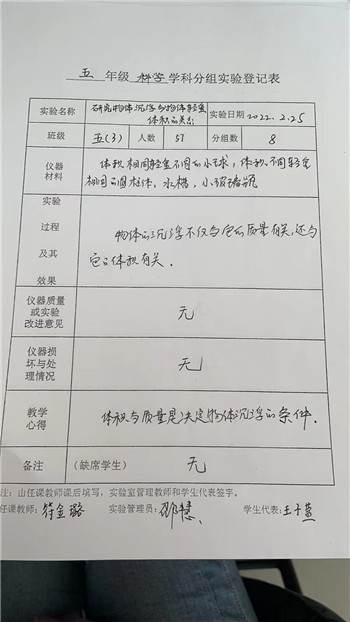 五 年级 科学 学科分组实验登记表
实验名称 研究物体沉浮与物体轻重 实验日期 2022.2.25
体积的关系
班级 五(3) 人数 57 分组数 8
仪器 体积相同轻重不同的小球，体积不同轻重
材料 相同的圆柱体，水槽，小玻璃瓶
实验
过程 物体的沉浮不仅与它的质量有关，还与
及其 它的体积有关．
效果
仪器质量
或实验 无
改进意见
仪器损
坏与处 无
理情况
教学 体积与质量是决定物体沉浮的条件．
心得
备注 (缺席学生) 无
注：由任课教师课后填写，实验室管理教师和学生代表签字。
任课教师：符金璐 实验管理员： 学生代表：王子萱